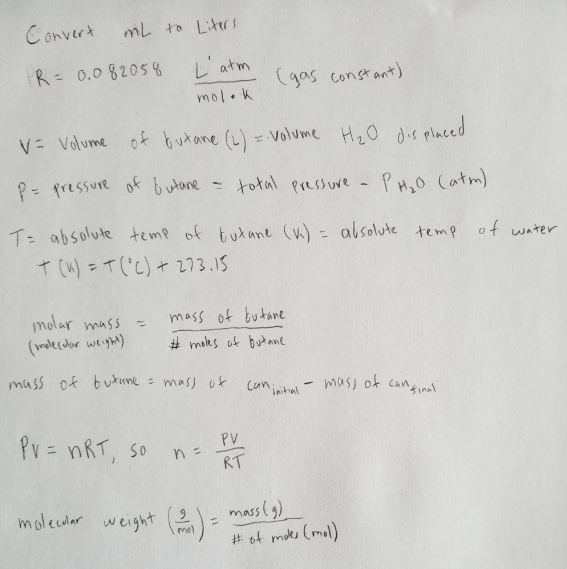 Convert mL to Liters
R = 0.082058 L·atm / mol·K (gas constant)
V = Volume of butane (L) = volume H₂O displaced
P = pressure of butane = total pressure - P H₂O (atm)
T = absolute temp of butane (K) = absolute temp of water
T (K) = T (°C) + 273.15
molar mass (molecular weight) = mass of butane / # moles of butane
mass of butane = mass of can initial - mass of can final
PV = nRT, so n = PV / RT
molecular weight (g/mol) = mass (g) / # of moles (mol)